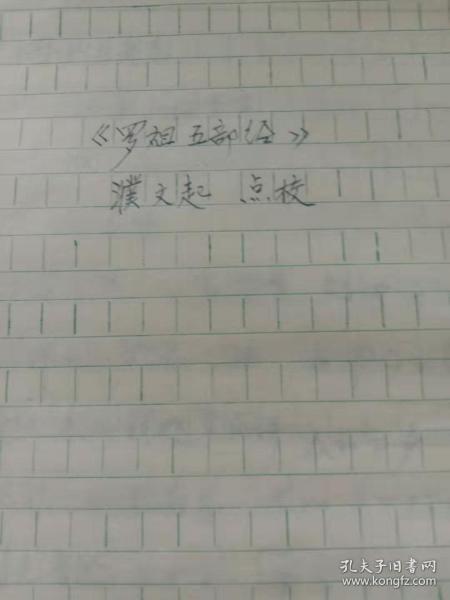 《罗祖五部经》
濮文起 点校
孔夫子旧书网
www.kongfz.com